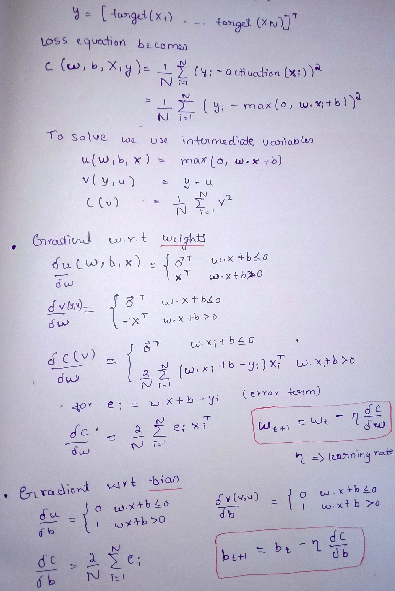 y = [ target(x₁) . - - . target (x_N)]ᵀ
Loss equation becomes
C (w, b, X, y) = 1/N Σ_{i=1}^{N} (yᵢ - activation (xᵢ))²
= 1/N Σ_{i=1}^{N} (yᵢ - max(0, w.xᵢ+b))²
To solve we use intermediate variables
u(w, b, x) = max (0, w.x+b)
v(y, u) = y - u
C(v) = 1/N Σ_{i=1}^{N} v²
• Gradient w.r.t weights
δu(w, b, x)/δw = { 0⃗ᵀ w.x+b≤0
xᵀ w.x+b>0
δv(y,u)/δw = { 0⃗ᵀ w.x+b≤0
-xᵀ w.x+b>0
δC(v)/δw = { 0⃗ᵀ w.xᵢ+b≤0
2/N Σ_{i=1}^{N} (w.xᵢ+b-yᵢ) xᵢᵀ w.xᵢ+b>0
• for eᵢ = w.x+b-yᵢ (error term)
δC/δw = 2/N Σ_{i=1}^{N} eᵢ xᵢᵀ
w_{t+1} = w_t - η δC/δw
η => learning rate
• Gradient wrt bias
δu/δb = { 0 w.x+b≤0
1 wx+b>0
δv(y,u)/δb = { 0 w.x+b≤0
1 w.x+b>0
δC/δb = 2/N Σ_{i=1}^{N} eᵢ
b_{t+1} = b_t - η δC/δb